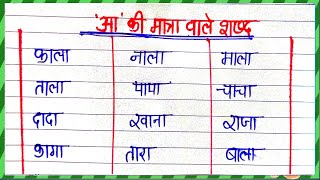 'आ' की मात्रा वाले शब्द
काला नाला माला
ताला पापा चाचा
दादा खाना राजा
कागा तारा बाला